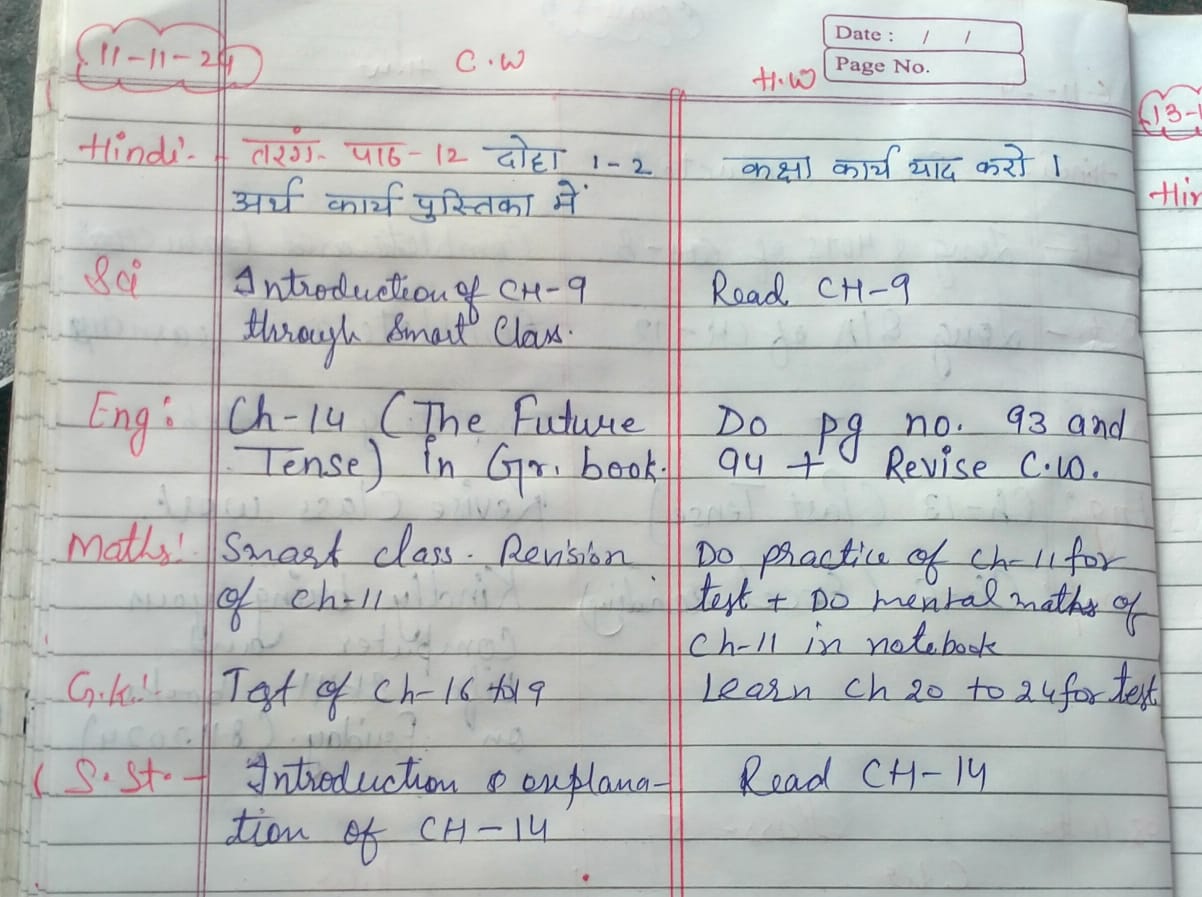 11-11-24
C.W
H.W
Date : / /
Page No.
Hindi:- तरंग- पाठ-12 दोहा 1-2
कक्षा कार्य याद करो ।
अर्थ कार्य पुस्तिका में
Sci Introduction of CH-9
Read CH-9
through Smart Class.
Eng: Ch-14 (The Future
Do pg no. 93 and
Tense) in Gr. book.
94 + Revise C.W.
Maths:- Smart class. Revision
Do practice of Ch-11 for
of ch-11
test + Do mental maths of
Ch-11 in notebook
G.k:- Tst of Ch-16 to 19
Learn Ch 20 to 24 for test
S.St.- Introduction & explana-
Read CH-14
tion of CH-14
13-
Hin